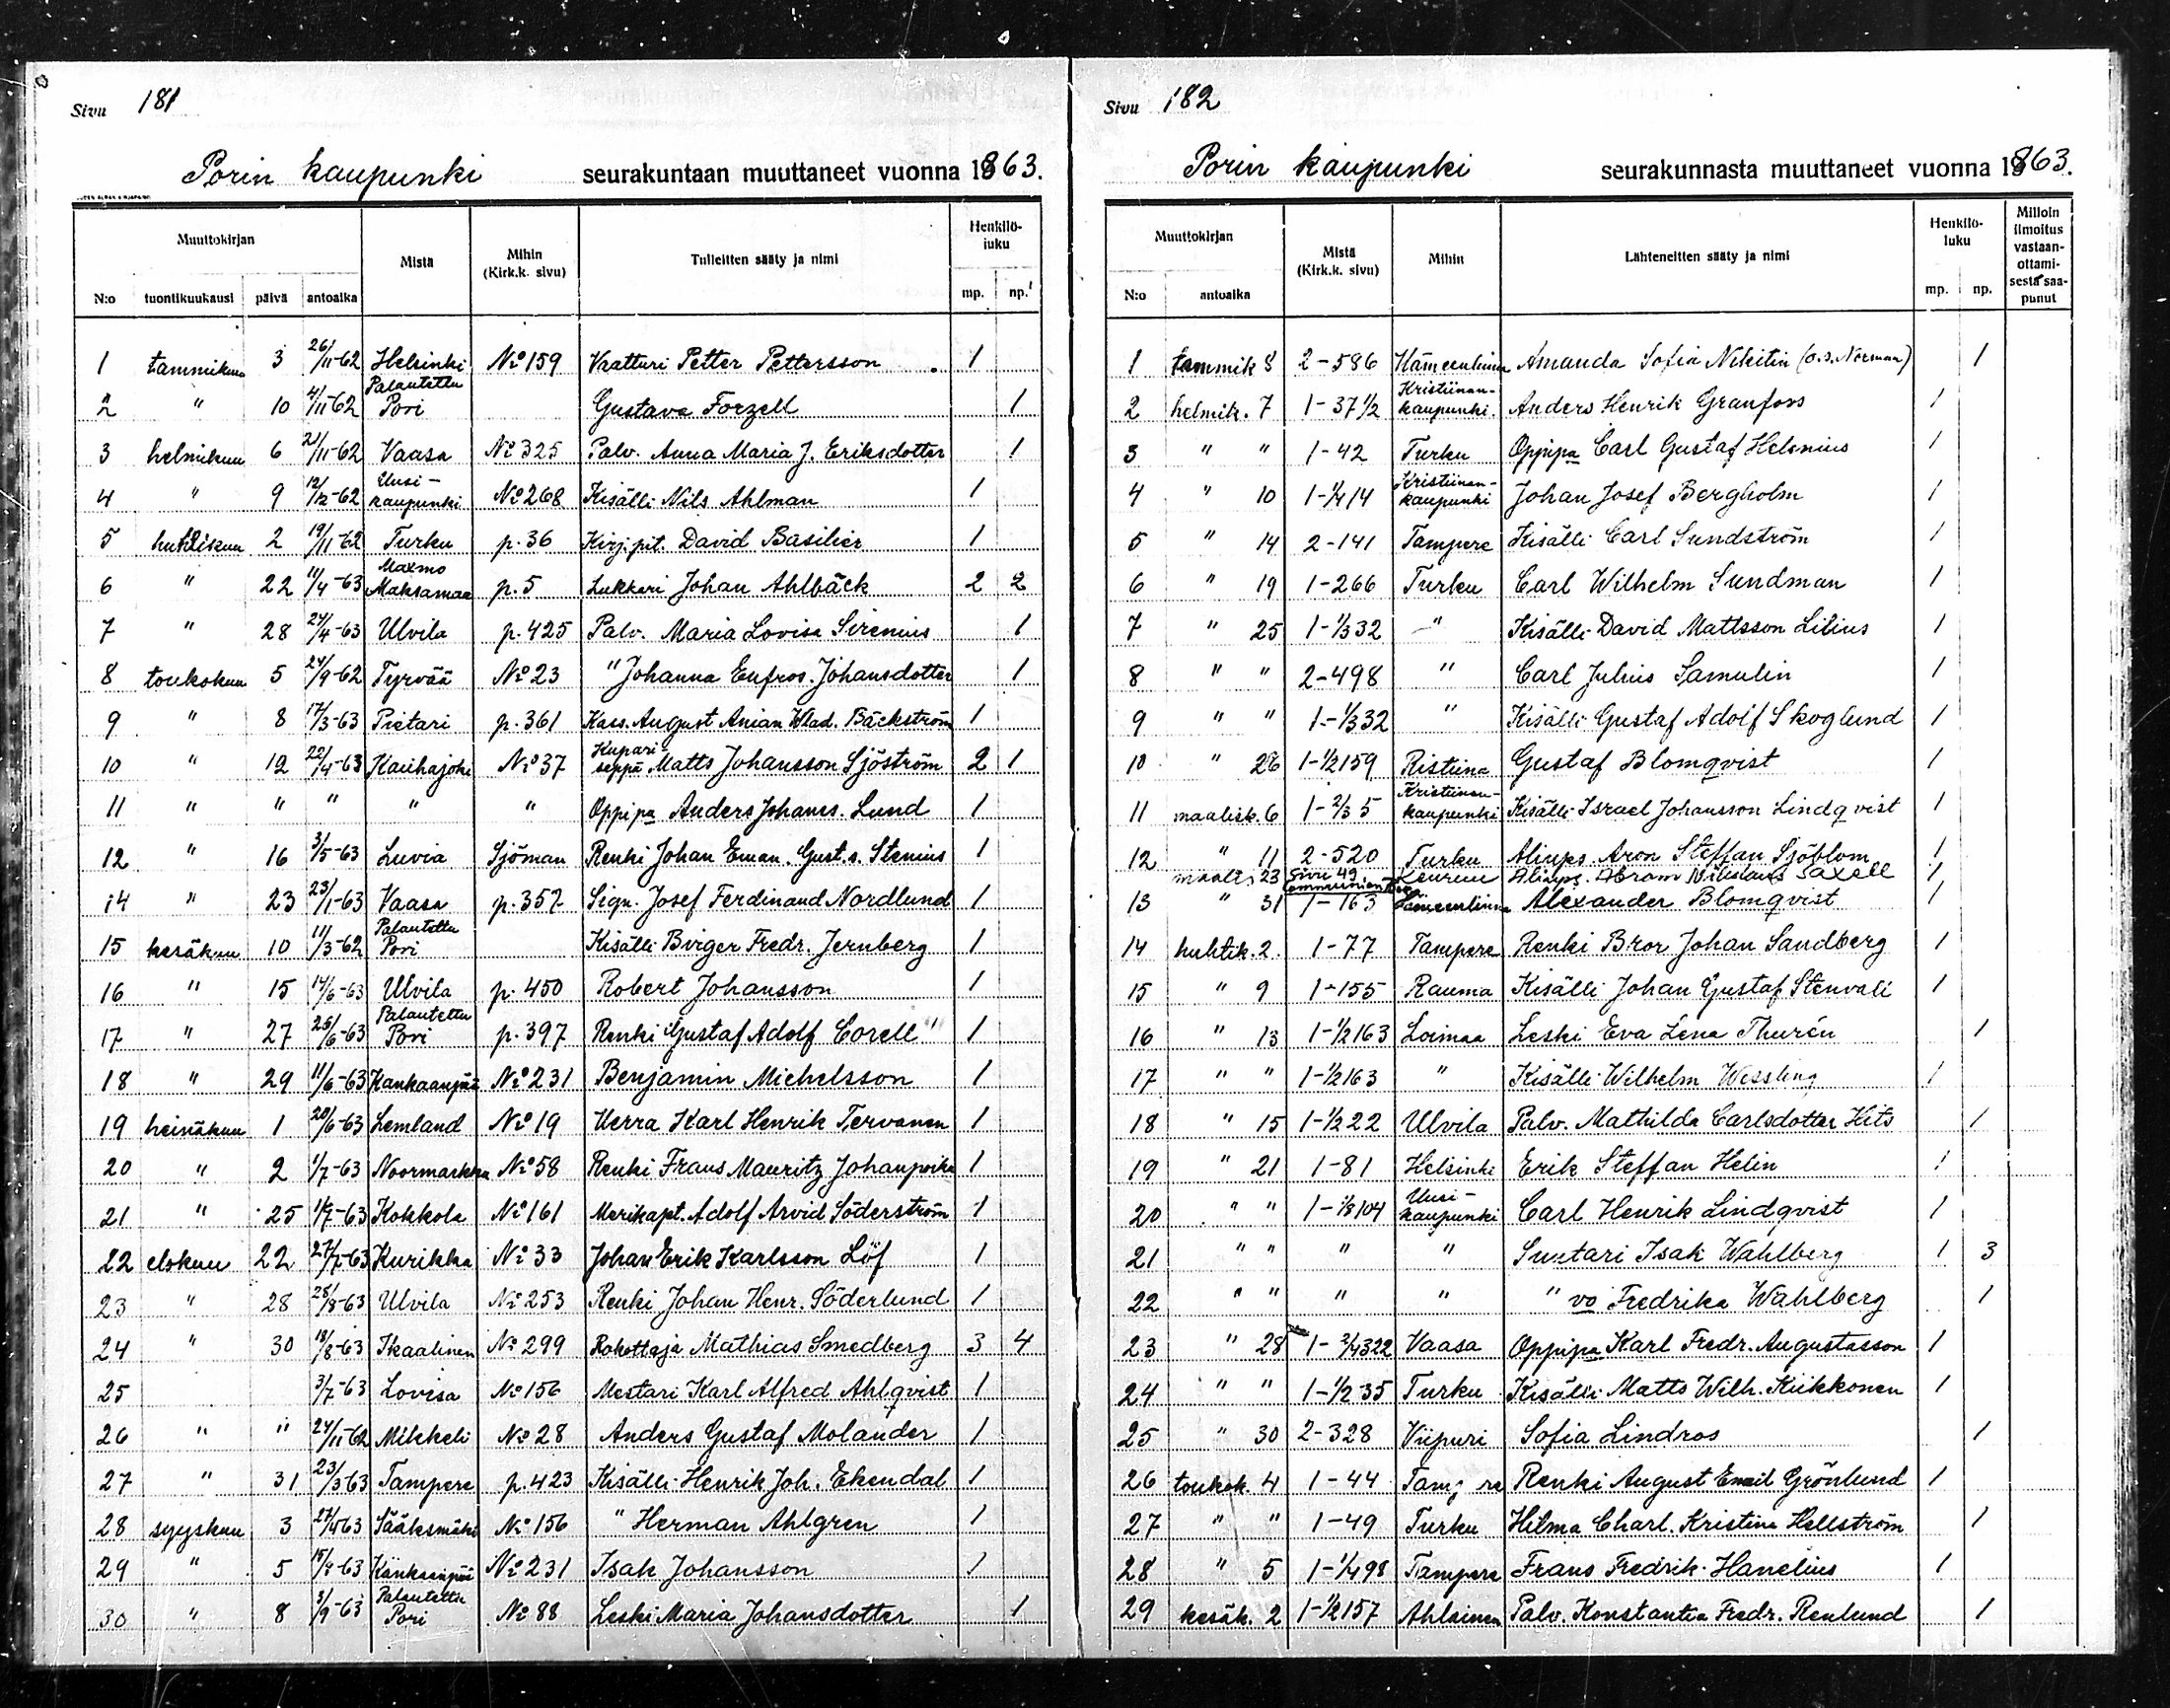 Sivu 181
Porin kaupunki seurakuntaan muuttaneet vuonna 1863.
Muuttokirjan
Mistä
Mihin (Kirk.k. sivu)
Tulleitten sääty ja nimi
Henkilöluku
N:o tuontikuukausi päivä antoaika mp. np.
1 tammikuu 3 26/11-62 Helsinki No 159 Vaatturi Petter Pettersson 1
2 " 10 4/11-62 Palautettu Pori Gustava Forzell 1
3 helmikuu 6 21/11-62 Vaasa No 325 Palv. Anna Maria J. Eriksdotter 1
4 " 9 12/12-62 Uusi-kaupunki No 268 Kisälli Nils Ahlman 1
5 huhtikuu 2 19/11-62 Turku p. 36 Kirj.pit. David Basilier 1
6 " 22 11/4-63 Maxmo Maksamaa p. 5 Lukkari Johan Ahlbäck 2 2
7 " 28 24/4-63 Ulvila p. 425 Palv. Maria Lovisa Sirenius 1
8 toukokuu 5 24/9-62 Tyrvää No 23 " Johanna Eufros. Johansdotter 1
9 " 8 17/3-63 Pietari p. 361 Kass. August Anian Wlad. Bäckström 1
10 " 12 22/4-63 Kauhajoki No 37 Kupariseppä Matts Johansson Sjöström 2 1
11 " " " " " Oppipa Anders Johans. Lund 1
12 " 16 3/5-63 Luvia Sjöman Renki Johan Eman. Gust.s. Stenius 1
14 " 23 23/1-63 Vaasa p. 357 Sign. Josef Ferdinand Nordlund 1
15 kesäkuu 10 11/3-62 Palautettu Pori Kisälli Birger Fredr. Jernberg 1
16 " 15 14/6-63 Ulvila p. 450 Robert Johansson 1
17 " 27 26/6-63 Palautettu Pori p. 397 Renki Gustaf Adolf Corell 1
18 " 29 11/6-63 Kankaanpää No 231 Benjamin Michelsson 1
19 heinäkuu 1 20/6-63 Lemland No 19 Herra Karl Henrik Tervonen 1
20 " 2 1/7-63 Noormarkku No 58 Renki Frans Mauritz Johanpoika 1
21 " 25 /7-63 Kokkola No 161 Merikapt. Adolf Arvid Söderström 1
22 elokuu 22 27/7-63 Kurikka No 33 Johan Erik Karlsson Löf 1
23 " 28 28/8-63 Ulvila No 253 Renki Johan Henr. Söderlund 1
24 " 30 18/8-63 Ikaalinen No 299 Rokottaja Mathias Smedberg 3 4
25 3/7-63 Lovisa No 156 Mestari Karl Alfred Ahlqvist 1
26 " " 24/11-62 Mikkeli No 28 Anders Gustaf Molander 1
27 " 31 23/3-63 Tampere p. 423 Kisälli Henrik Joh. Ekendal 1
28 syyskuu 3 27/4-63 Sääksmäki No 156 " Herman Ahlgren 1
29 " 5 -63 Kankaanpää No 231 Isak Johansson 1
30 " 8 3/9-63 Palautettu Pori No 88 Leski Maria Johansdotter 1
Sivu 182
Porin kaupunki seurakunnasta muuttaneet vuonna 1863.
Muuttokirjan
Mistä (Kirk.k. sivu)
Mihin
Lähteneitten sääty ja nimi
Henkilöluku
Milloin ilmoitus vastaanottamisesta saapunut
N:o antoaika mp. np.
1 tammik 8 2-586 Hämeenlinna Amanda Sofia Nikitin (o.s. Norman) 1
2 helmik. 7 1-37 1/2 Kristiinan-kaupunki Anders Henrik Granfors 1
3 " " 1-42 Turku Oppipa Carl Gustaf Helenius 1
4 " 10 1-1/4 14 Kristiinan-kaupunki Johan Josef Bergholm 1
5 " 14 2-141 Tampere Kisälli Carl Sundström 1
6 " 19 1-266 Turku Carl Wilhelm Sundman 1
7 " 25 1-1/3 32 " Kisälli David Mattsson Lilius 1
8 " " 2-498 " Carl Julius Samulin 1
9 " " 1-1/3 32 " Kisälli Gustaf Adolf Skoglund 1
10 " 26 1-1/2 159 Ristiina Gustaf Blomqvist 1
11 maalisk. 6 1-2/3 5 Kristiinan-kaupunki Kisälli Israel Johansson Lindqvist 1
12 " 11 2-520 Turku Aliups. Aron Steffan Sjöblom 1
maalis 23 Sivu 49 Keuruu Aliups. Abram Nikolaus Saxell 1
13 " 31 1-163 Hämeenlinna Alexander Blomqvist 1
14 huhtik. 2. 1-77 Tampere Renki Bror Johan Sandberg 1
15 " 9 1-155 Rauma Kisälli Johan Gustaf Stenvall 1
16 " 13 1-1/2 163 Loimaa Leski Eva Lena Thurén 1
17 " " 1-1/2 163 " Kisälli Wilhelm Wessling 1
18 " 15 1-1/2 22 Ulvila Palv. Mathilda Carlsdotter Hits 1
19 " 21 1-81 Helsinki Erik Steffan Helin 1
20 " " 1-1/8 104 Uusi-kaupunki Carl Henrik Lindqvist 1
21 " " " " Suntari Isak Wahlberg 1 3
22 " " " " " vo Fredrika Wahlberg 1
23 " 28 1-3/4 322 Vaasa Oppipa Karl Fredr. Augustasson 1
24 " " 1-1/2 35 Turku Kisälli Matts Wilh. Kiikkonen 1
25 " 30 2-328 Viipuri Sofia Lindros 1
26 toukok. 4 1-44 Tampere Renki August Emil Grönlund 1
27 " " 1-49 Turku Hilma Charl. Kristina Hellström 1
28 " 5 1-1/4 98 Tampere Frans Fredrik Hanelius 1
29 kesäk. 2 1-1/2 157 Ahlainen Palv. Konstantia Fredr. Renlund 1